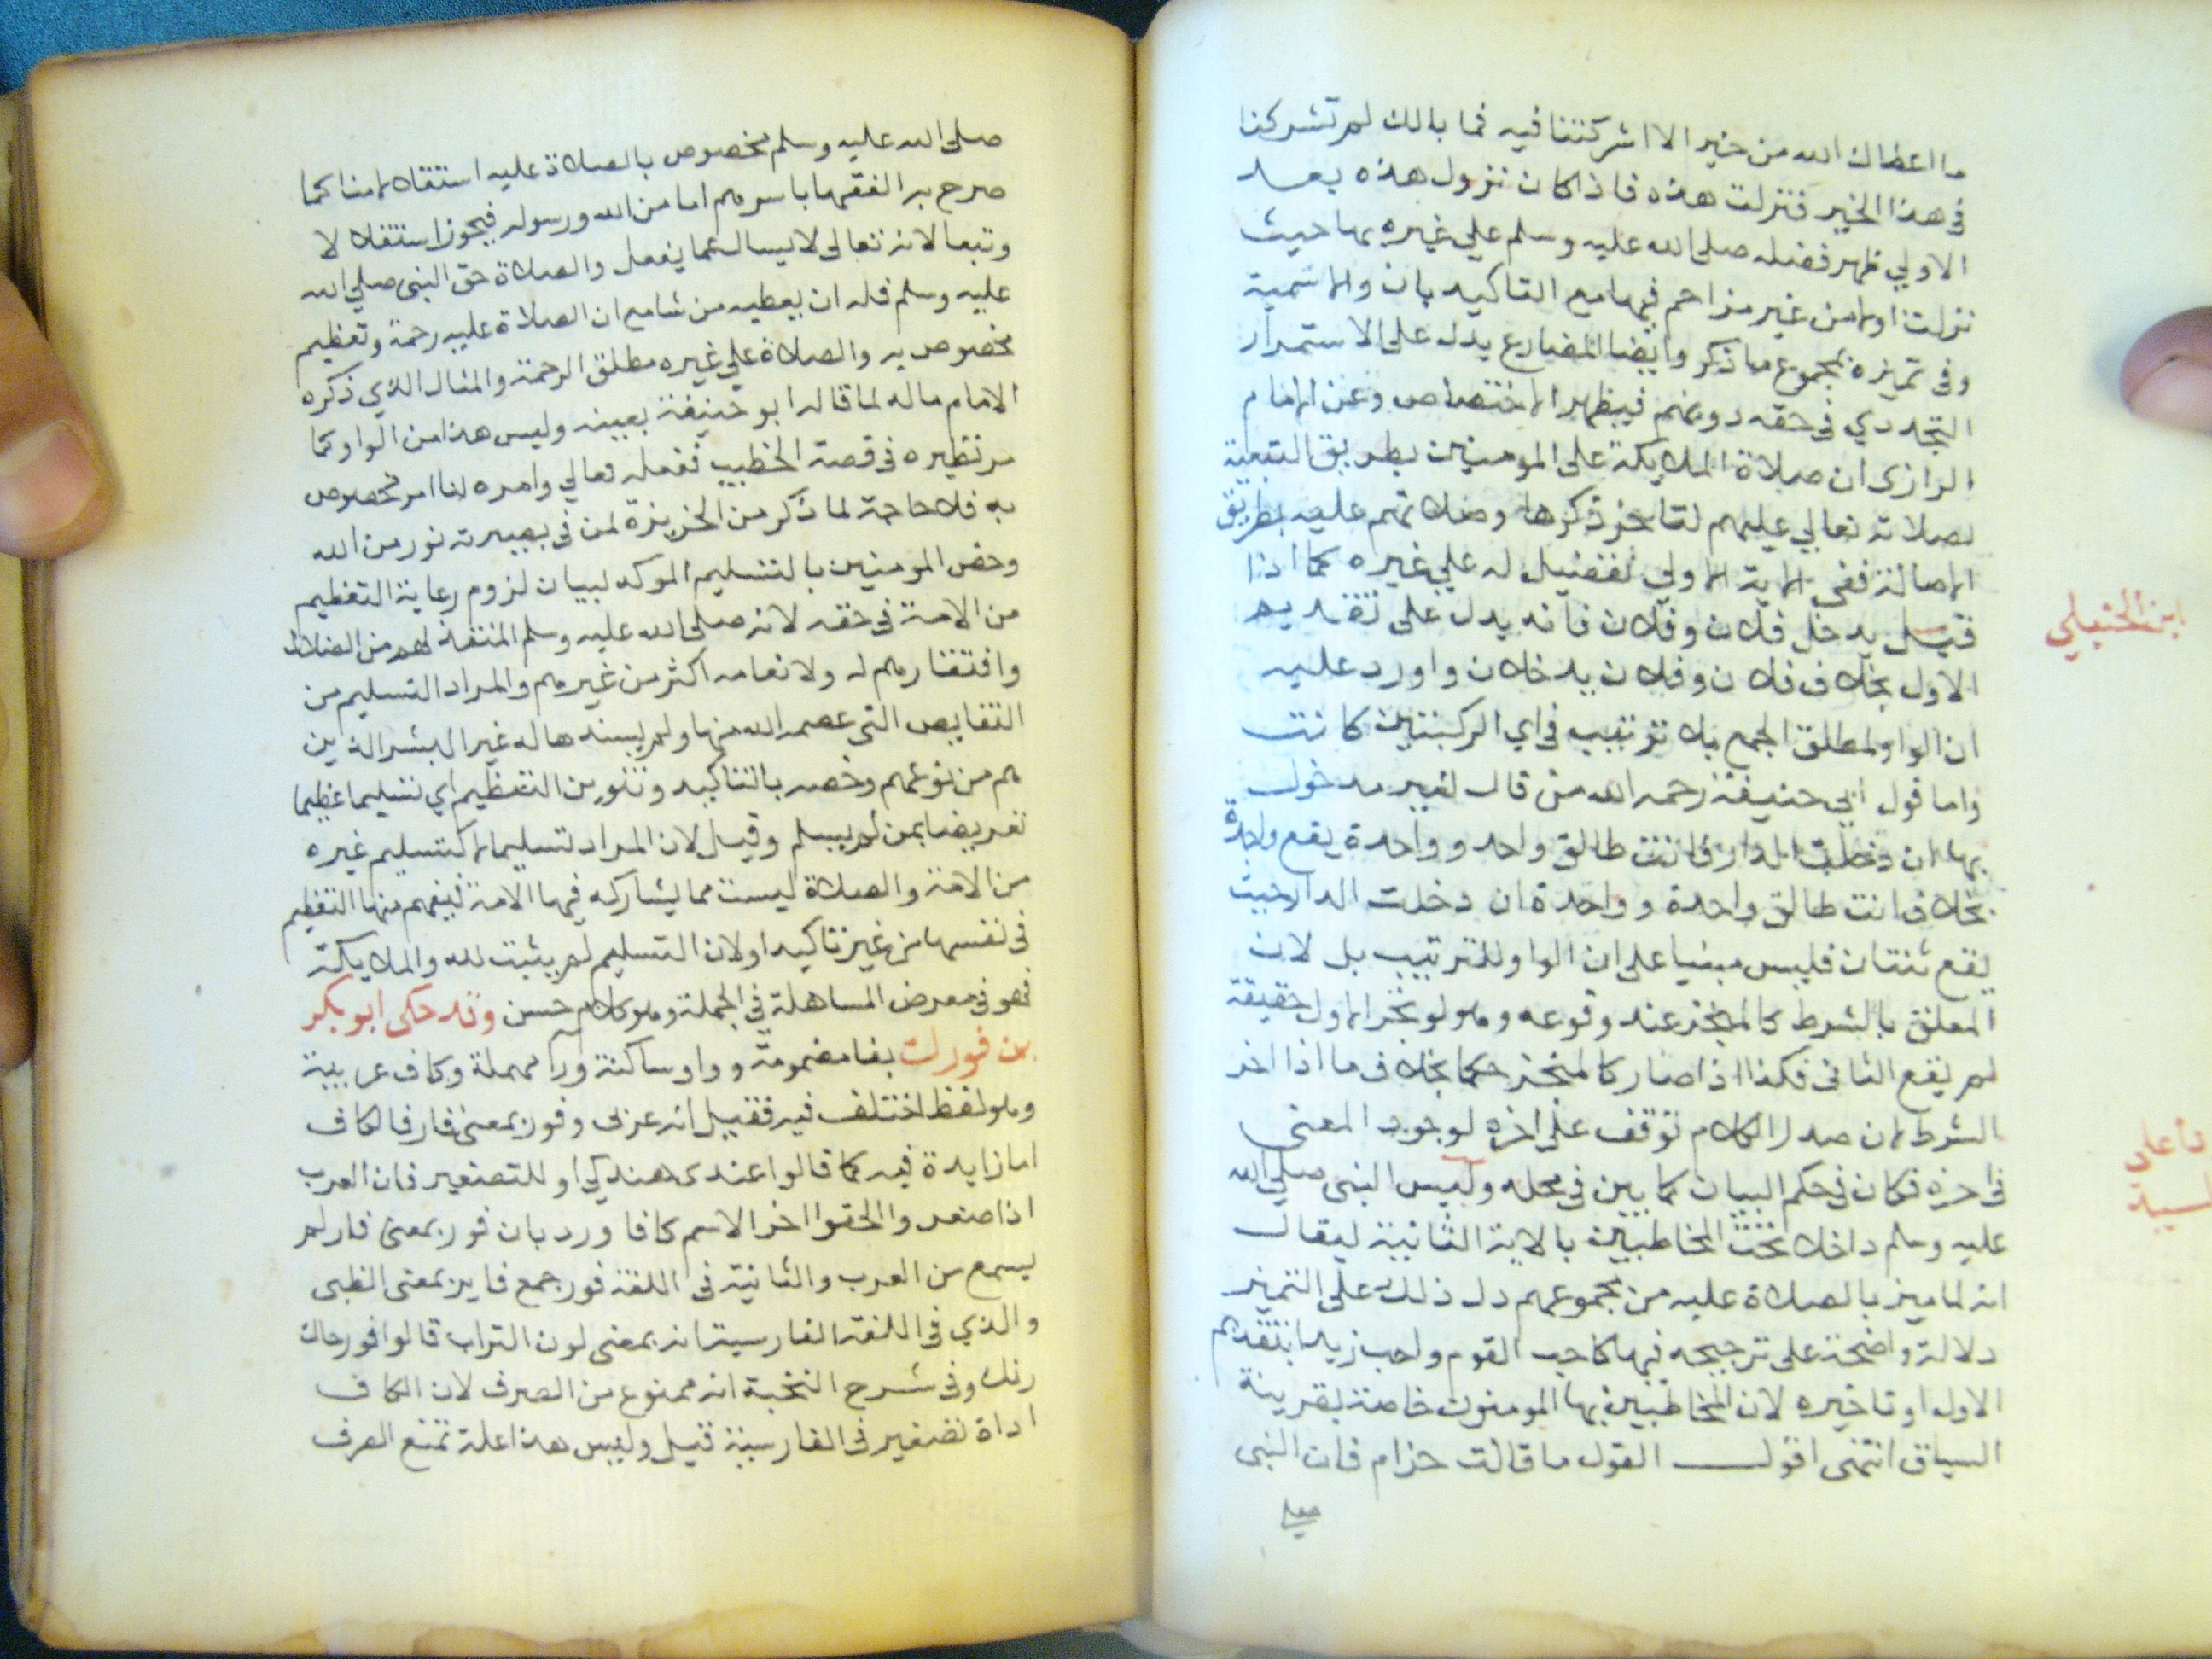 ما اعطاك الله من خير الا اشركتنا فيه فما بالك لم تشركنا
في هذا الخير فنزلت هذه فاذا كان نزول هذه بعد
الاولي ظهر فضله صلى الله عليه وسلم علي غيره بها حيث
نزلت اولا من غير مزاحم فيها مع التاكيد بان والاسمية
وفي تميزه بمجموع ما ذكر وايضا المضارع يدل على الاستمرار
التجددي في حقه دونهم فيظهر الاختصاص وعن الامام
الرازي ان صلاة الملايكة على المومنين بطريق التبعية
لصلاته تعالي عليهم لتاخر ذكرها وصلاتهم عليه بطريق
الاصالة ففي الاية الاولي تفضيل له علي غيره كما اذا
قيل يدخل فلان وفلان فانه يدل على تقديم
الاول بخلاف فلان وفلان يدخلان واورد عليه
ان الواو لمطلق الجمع بلا ترتيب في اي كانت
واما قول ابي حنيفة رحمه الله من قال لغير مدخول
بها ان دخلت الدار فانت طالق واحد وواحدة يقع واحدة
بخلاف انت طالق واحدة وواحدة ان دخلت الدار حيث
يقع ثنتان فليس مبنيا على ان الواو للترتيب بل لان
المعلق بالشرط كالمنجز عند وقوعه وهو لو نجز الاول حقيقة
لم يقع الثاني فكذا اذا صار كالمنجز حكما بخلاف ما اذا اخر
الشرط لان صدر الكلام توقف على اخره لوجود المعنى
في اخره فكان في حكم البيان كما بين في محله وليس النبي صلي الله
عليه وسلم داخلا تحت المخاطبين بالاية الثانية ليقال
انه لما ميز بالصلاة عليه من مجموعهم دل ذلك على التميز
دلالة واضحة على ترجيحه فيها كاحب القوم واحب زيدا بتقديم
الاول او تاخيره لان المخاطبين بها المومنون خاصة بقرينة
السياق انتهى اقول القول ما قالت حزام فان النبى
صلى
ابن الحنبلي
صلى الله عليه وسلم مخصوص بالصلاة عليه استقلالا منا كما
صرح به الفقها باسرهم اما من الله ورسوله فيجوز استقلالا
وتبعا لانه تعالى لا يسال عما يفعل والصلاة حق النبى صلي الله
عليه وسلم فله ان يعطيه من شا مع ان الصلاة عليه رحمة وتعظيم
مخصوص به والصلاة علي غيره مطلق الرحمة والمثال الذي ذكره
الامام ماله لما قاله ابو حنيفة بعينه وليس هذا من الواو كما
مر نظيره في قصة الخطيب ففعله تعالي وامره لنا امر مخصوص
به فلا حاجة لما ذكر من لمن في بصيرته نور من الله
وخص المومنين بالتسليم الموكد لبيان لزوم رعاية التعظيم
من الامة في حقه لانه صلى الله عليه وسلم المنقذ لهم من الضلال
وافتقارهم له ولانعامه اكثر من غيرهم والمراد التسليم من
النقايص التي عصمه الله منها ولم يسندها له غير البشر الذين
هم من نوعهم وخصه بالتاكيد وتنوين التعظيم اي تسليما عظيما
تعريضا بمن لم يسلم وقيل لان المراد تسليما لا كتسليم غيره
من الامة والصلاة ليست مما يشاركه فيها الامة فيفهم منها التعظيم
في نفسها من غير تاكيد او لان التسليم لم يثبت لله والملايكة
فهو في معرض المساهلة في الجملة وهو كلام حسن وقد حكى ابو بكر
بن فورك بفا مضمومة وواو ساكنة ورا مهملة وكاف عربية
وهو لفظ اختلف فيه فقيل انه عربي وفور بمعنى فار فالكاف
اما زايدة فيه كما قالوا عندى هندكي او للتصغير فان العرب
اذا صغروا الحقوا اخر الاسم كافا ورد بان فور بمعنى فار لم
يسمع من العرب والثانية في اللغة فور جمع فاير بمعنى الظبى
والذي في اللغة الفارسية انه بمعنى لون التراب قالوا فور خاك
رنك وفي شرح النخبة انه ممنوع من الصرف لان الكاف
اداة تصغير في الفارسية قيل وليس هذا علة تمنع الصرف